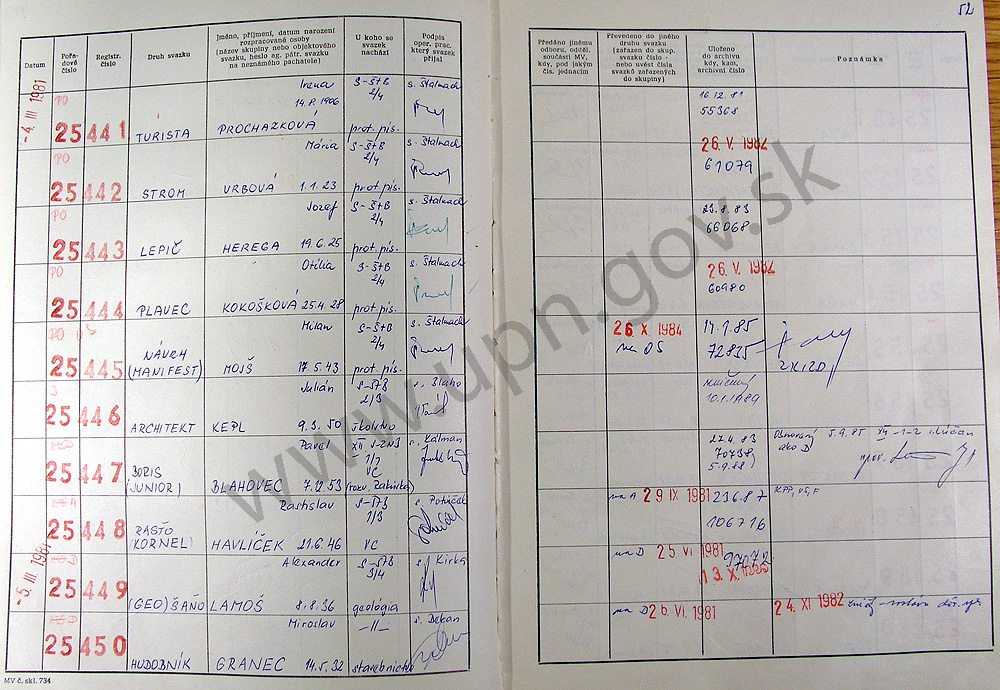 52
Datum
Pořadové číslo
Registr. číslo
Druh svazku
Jméno, příjmení, datum narození
rozpracované osoby
(název skupiny nebo objektového
svazku, heslo ag. pátr. svazku
na neznámého pachatele)
U koho se
svazek
nachází
Podpis
oper. prac.
který svazek
přijal
Předáno jinému
odboru, odděl.
součásti MV,
kdy, pod jakým
čís. jednacím
Převedeno do jiného
druhu svazku
(zařazen do skup.
svazku číslo -
nebo uvést čísla
svazků zařazených
do skupiny)
Uloženo
do archivu
kdy, kam,
archivní číslo
Poznámka
-4. III 1981
PO
25 441
TURISTA
Irena
14.8.1906
PROCHAZKOVÁ
S-ŠtB
2/4
prot. pis.
s. Štalmach
16.12.81
55368
PO
25 442
STROM
Mária
URBOVÁ 1.1.23
S-ŠtB
2/4
prot pis.
s. Štalmach
26. V. 1982
61079
PO
25 443
LEPIČ
Jozef
HEREGA 19.6.25
S-ŠtB
2/4
prot. pis.
s. Štalmach
23.8.83
66068
PO
25 444
PLAVEC
Otília
KOKOŠKOVÁ 25.4.28
S-ŠtB
2/4
prot. pis.
s. Štalmach
26. V. 1982
60980
PO
25 445
NÁVRH
(MANIFEST)
Milan
MOJŠ 17.5.43
S-ŠtB
2/4
prot. pis.
s. Štalmach
26 X. 1984
na OS
14.1.85
72835
25 446
ARCHITEKT
Julián
KEPL 9.3.50
S-ŠTB
2/3
školstvo
s. Blaho
10.1.1989
25 447
BORIS
(JUNIOR)
Pavel
BLAHOVEC 7.12.53
XII S-ZNB
1/2
VC
(rozv. Rakúsko)
s. Kálman
27.4.83
70738
5.9.88
Obnovený
ako D
5.9.85
25 448
RASŤO
(KORNEL)
Rastislav
HAVLÍČEK 21.6.46
S-ŠTB
1/3
VC
s. Potúček
na A 29 IX 1981
23.6.87
106716
-5. III 1981
25 449
(GEO) ŠAŇO
Alexander
LAMOŠ 8.8.36
S-ŠTB
3/4
geológia
s. Kirka
na D 25 VI 1981
97072
25 450
HUDOBNÍK
Miroslav
GRANEC 14.5.32
-11-
stavebníctvo
s. Dekan
na D 26 VI. 1981
24. XI 1982
MV č. skl. 734
www.upn.gov.sk